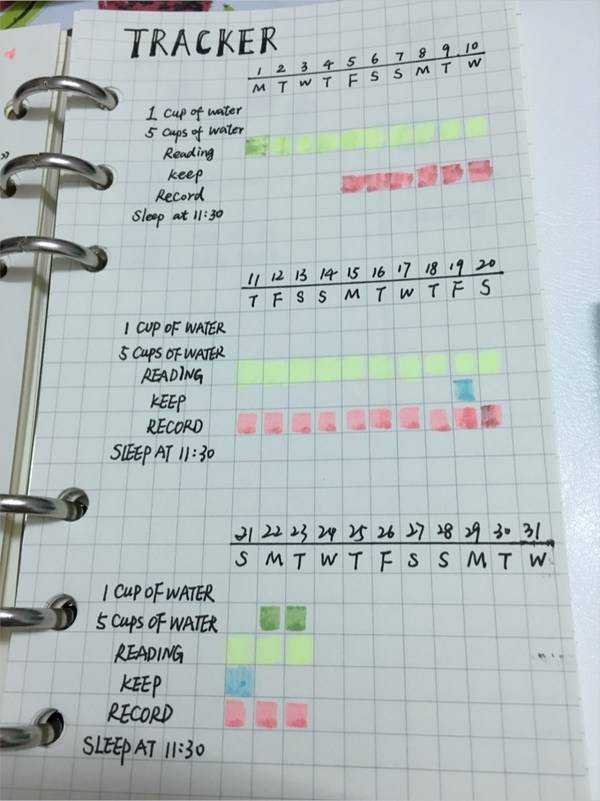 TRACKER
1 2 3 4 5 6 7 8 9 10
M T W T F S S M T W
1 Cup of water
5 Cups of water
Reading
keep
Record
Sleep at 11:30
11 12 13 14 15 16 17 18 19 20
T F S S M T W T F S
1 CUP OF WATER
5 CUPS OF WATER
READING
KEEP
RECORD
SLEEP AT 11:30
21 22 23 24 25 26 27 28 29 30 31
S M T W T F S S M T W
1 CUP OF WATER
5 CUPS OF WATER
READING
KEEP
RECORD
SLEEP AT 11:30